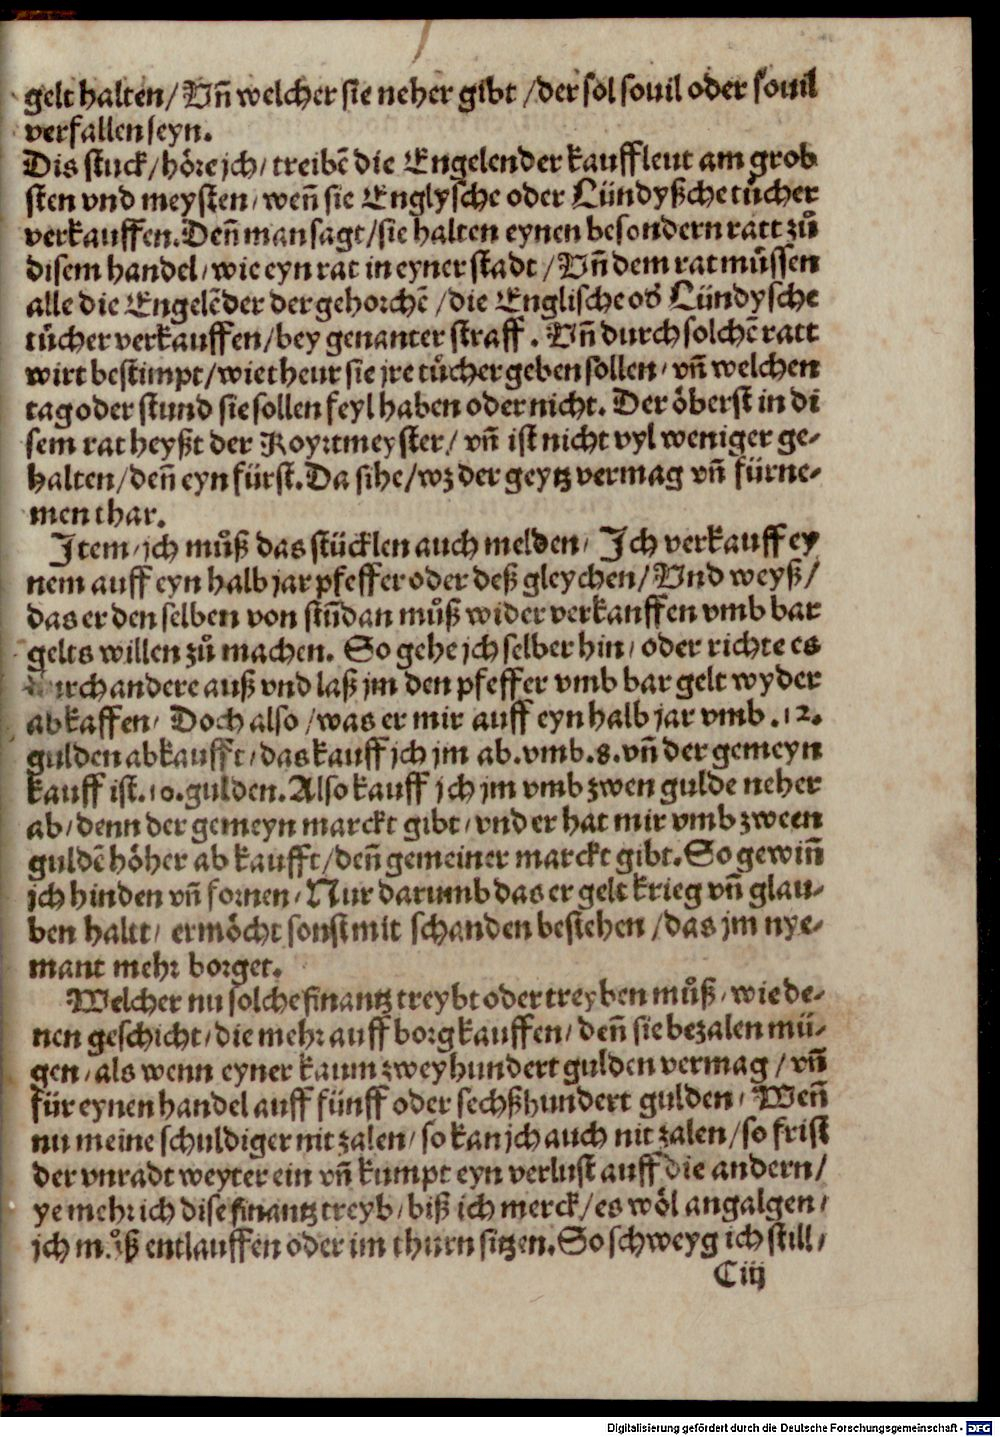 gelt halten/ Vñ welcher sie neher gibt /der sol souil oder souil
verfallen seyn.
Dis stuck/ höre jch/ treibẽ die Engelender kauffleut am grob
sten vnd meysten/ weñ sie Englysche oder Lündyßche tůcher
verkauffen. Deñ man sagt/sie halten eynen besondern ratt zů
disem handel/ wie eyn rat in eyner stadt /Vñ dem rat můssen
alle die Engelẽder der gehorchẽ /die Englische od' Lündysche
tůcher verkauffen/bey genanter straff. Vñ durch solchẽ ratt
wirt bestimpt/wie theur sie jre tůcher geben sollen/ vñ welchen
tag oder stund sie sollen feyl haben oder nicht. Der öberst in di
sem rat heyßt der Koyrtmeyster/ vñ ist nicht vyl weniger ge-
halten/deñ eyn fürst. Da sihe/wz der geytz vermag vñ fürne-
men thar.
Item/ jch můß das stücklen auch melden/ Ich verkauff ey
nem auff eyn halb jar pfeffer oder deß gleychen/ Vnd weyß/
das er den selben von stũdan můß wider verkauffen vmb bar
gelts willen zů machen. So gehe jch selber hin/ oder richte es
durch andere auß vnd laß jm den pfeffer vmb bar gelt wyder
abkaffen/ Doch also /was er mir auff eyn halb jar vmb .12.
gulden abkaufft/ das kauff jch jm ab. vmb. 8. vñ der gemeyn
kauff ist. 10. gulden. Also kauff jch jm vmb zwen gulde neher
ab/ denn der gemeyn marckt gibt/ vnd er hat mir vmb zween
guldẽ höher ab kaufft/ deñ gemeiner marckt gibt. So gewiñ
jch hinden vñ fornen/ Nur darumb das er gelt krieg vñ glau-
ben haltt/ er möcht sonst mit schanden bestehen /das jm nye-
mant mehr borget.
Welcher nu solche finantz treybt oder treyben můß/ wie de-
nen geschicht/ die mehr auff borg kauffen/ deñ sie bezalen mü-
gen/ als wenn eyner kaum zweyhundert gulden vermag / vñ
für eynen handel auff fünff oder sechßhundert gulden/ Weñ
nu meine schuldiger nit zalen/ so kan jch auch nit zalen/so frist
der vnradt weyter ein vñ kumpt eyn verlust auff die andern/
ye mehr ich dise finantz treyb/ biß ich merck/ es wöl an galgen/
jch můß entlauffen oder im thurn sitzen. So schweyg ich still/
C iij
Digitalisierung gefördert durch die Deutsche Forschungsgemeinschaft - DFG